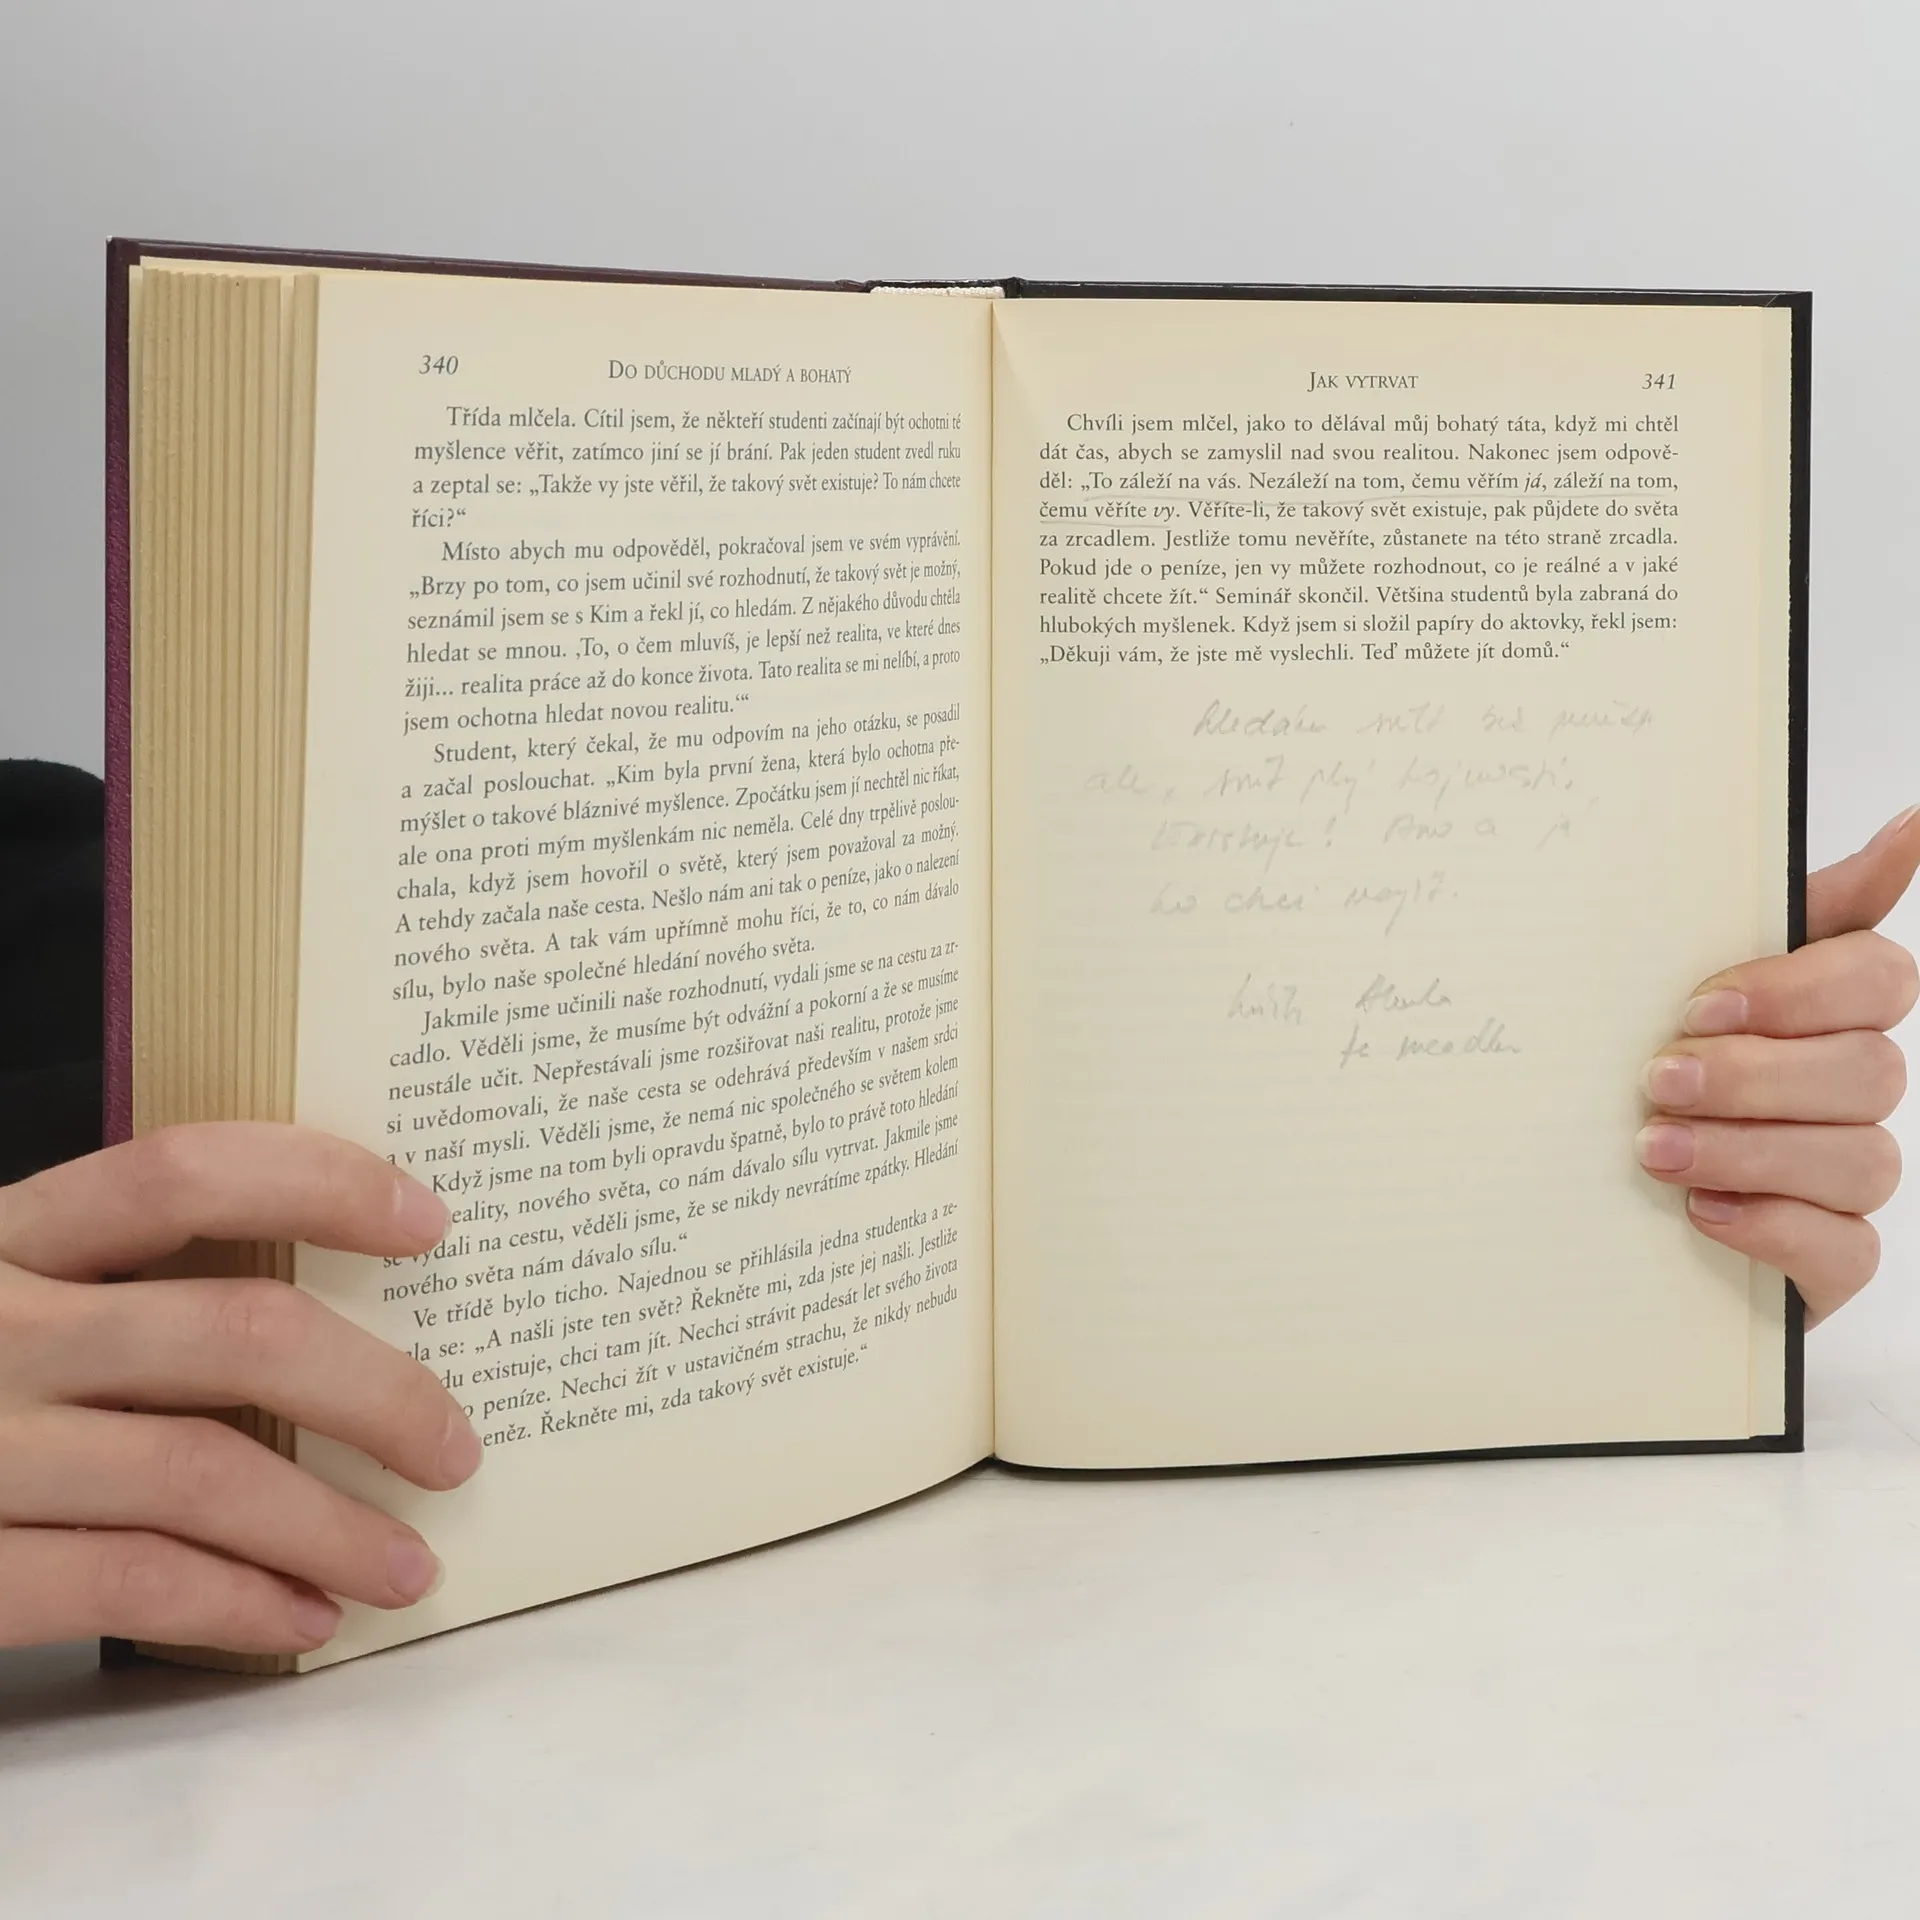 340
DO DŮCHODU MLADÝ A BOHATÝ
Třída mlčela. Cítil jsem, že někteří studenti začínají být ochotni té
myšlence věřit, zatímco jiní se jí brání. Pak jeden student zvedl ruku
a zeptal se: „Takže vy jste věřil, že takový svět existuje? To nám chcete
říci?“
Místo abych mu odpověděl, pokračoval jsem ve svém vyprávění.
„Brzy po tom, co jsem učinil své rozhodnutí, že takový svět je možný,
seznámil jsem se s Kim a řekl jí, co hledám. Z nějakého důvodu chtěla
hledat se mnou. ‚To, o čem mluvíš, je lepší než realita, ve které dnes
žiji... realita práce až do konce života. Tato realita se mi nelíbí, a proto
jsem ochotna hledat novou realitu.‘“
Student, který čekal, že mu odpovím na jeho otázku, se posadil
a začal poslouchat. „Kim byla první žena, která bylo ochotna pře-
mýšlet o takové bláznivé myšlence. Zpočátku jsem jí nechtěl nic říkat,
ale ona proti mým myšlenkám nic neměla. Celé dny trpělivě poslou-
chala, když jsem hovořil o světě, který jsem považoval za možný.
A tehdy začala naše cesta. Nešlo nám ani tak o peníze, jako o nalezení
nového světa. A tak vám upřímně mohu říci, že to, co nám dávalo
sílu, bylo naše společné hledání nového světa.
Jakmile jsme učinili naše rozhodnutí, vydali jsme se na cestu za zr-
cadlo. Věděli jsme, že musíme být odvážní a pokorní a že se musíme
neustále učit. Nepřestávali jsme rozšiřovat naši realitu, protože jsme
si uvědomovali, že naše cesta se odehrává především v našem srdci
a v naší mysli. Věděli jsme, že nemá nic společného se světem kolem
Když jsme na tom byli opravdu špatně, bylo to právě toto hledání
eality, nového světa, co nám dávalo sílu vytrvat. Jakmile jsme
se vydali na cestu, věděli jsme, že se nikdy nevrátíme zpátky. Hledání
nového světa nám dávalo sílu.“
Ve třídě bylo ticho. Najednou se přihlásila jedna studentka a ze-
ala se: „A našli jste ten svět? Řekněte mi, zda jste jej našli. Jestliže
du existuje, chci tam jít. Nechci strávit padesát let svého života
o peníze. Nechci žít v ustavičném strachu, že nikdy nebudu
eněz. Řekněte mi, zda takový svět existuje.“
JAK VYTRVAT
341
Chvíli jsem mlčel, jako to dělával můj bohatý táta, když mi chtěl
dát čas, abych se zamyslil nad svou realitou. Nakonec jsem odpově-
děl: „To záleží na vás. Nezáleží na tom, čemu věřím já, záleží na tom,
čemu věříte vy. Věříte-li, že takový svět existuje, pak půjdete do světa
za zrcadlem. Jestliže tomu nevěříte, zůstanete na této straně zrcadla.
Pokud jde o peníze, jen vy můžete rozhodnout, co je reálné a v jaké
realitě chcete žít.“ Seminář skončil. Většina studentů byla zabraná do
hlubokých myšlenek. Když jsem si složil papíry do aktovky, řekl jsem:
„Děkuji vám, že jste mě vyslechli. Teď můžete jít domů.“
ale
Ano a já
ho chci